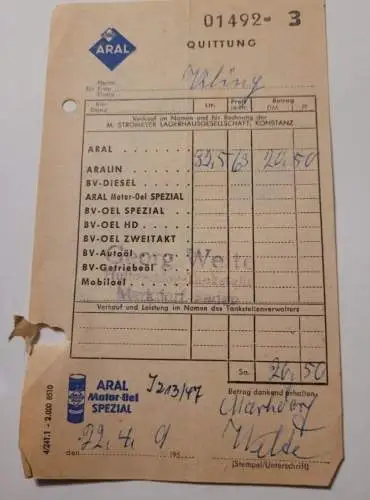 ARAL
01492- 3
QUITTUNG
Name
für Firma Kling
Ltr. Preis Betrag
DM
Verkauf im Namen und für Rechnung der
M. STROMEYER LAGERHAUSGESELLSCHAFT, KONSTANZ
ARAL
ARALIN 32,5 63 20,50
BV-DIESEL
ARAL Motor-Oel SPEZIAL
BV-OEL SPEZIAL
BV-OEL HD
BV-OEL ZWEITAKT
BV-Autoöl
BV-Getriebeöl
Mobiloel
Georg Welte
Markdorf
Verkauf und Leistung im Namen des Tankstellenverwalters
Sa. 20,50
ARAL
Motor-Oel
SPEZIAL
J213/47
Betrag dankend erhalten
Markdorf
22.4.9
den 195
Welte
(Stempel/Unterschrift)
4/247.1 - 2.000 8510